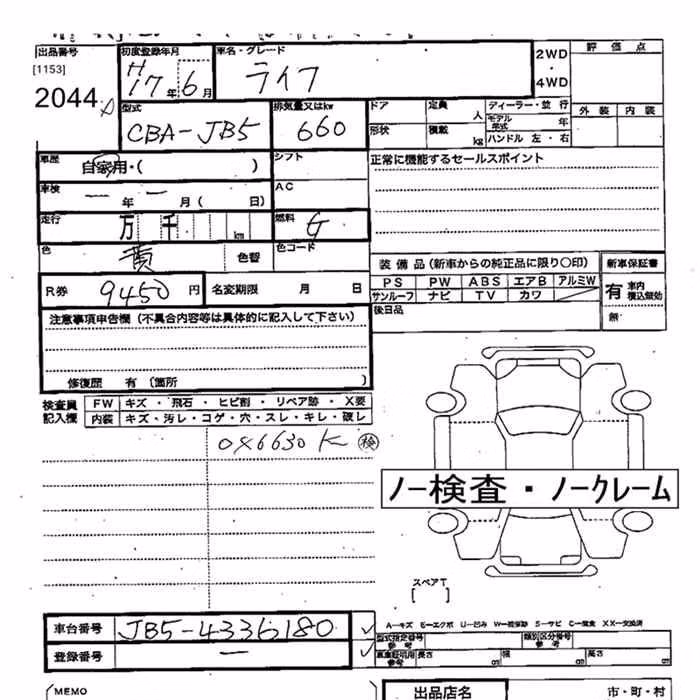 出品番号 初度登録年月 車名・グレード 2WD ・ 4WD 評価点
[1153] H17年 6月 ライフ
2044 外装 内装
型式 排気量又はkw ドア 定員 人 ディーラー・並行
CBA-JB5 660 形状 積載 kg モデル年式 年
ハンドル 左・右
車歴 自家用・( ) シフト 正常に機能するセールスポイント
車検 ー年ー月( 日) AC
走行 万 千 km 燃料 G
色 黄 色替 色コード
装備品(新車からの純正品に限り〇印) 新車保証書
R券 9450円 名変期限 月 日 PS PW ABS エアB アルミW 有 車内積込観効
サンルーフ ナビ TV カワ
注意事項申告欄(不具合内容等は具体的に記入して下さい) 後日品 無
修復歴 有(箇所 )
検査員記入欄 FW キズ・飛石・ヒビ割・リペア跡・X要
内装 キズ・汚レ・コゲ・穴・スレ・キレ・破レ
0X6630K 検
ノー検査・ノークレーム
スペアT
[ ]
車台番号 JB5-4336180 ✓ A-キズ E-エクボ U-凹み W-補修跡 S-サビ C-腐食 XX-交換済
型式指定番号 参考 類別区分番号 参考
登録番号 ー ✓ 車庫証明用 参考 長さ cm 幅 cm 高さ cm
MEMO 出品店名 市・町・村